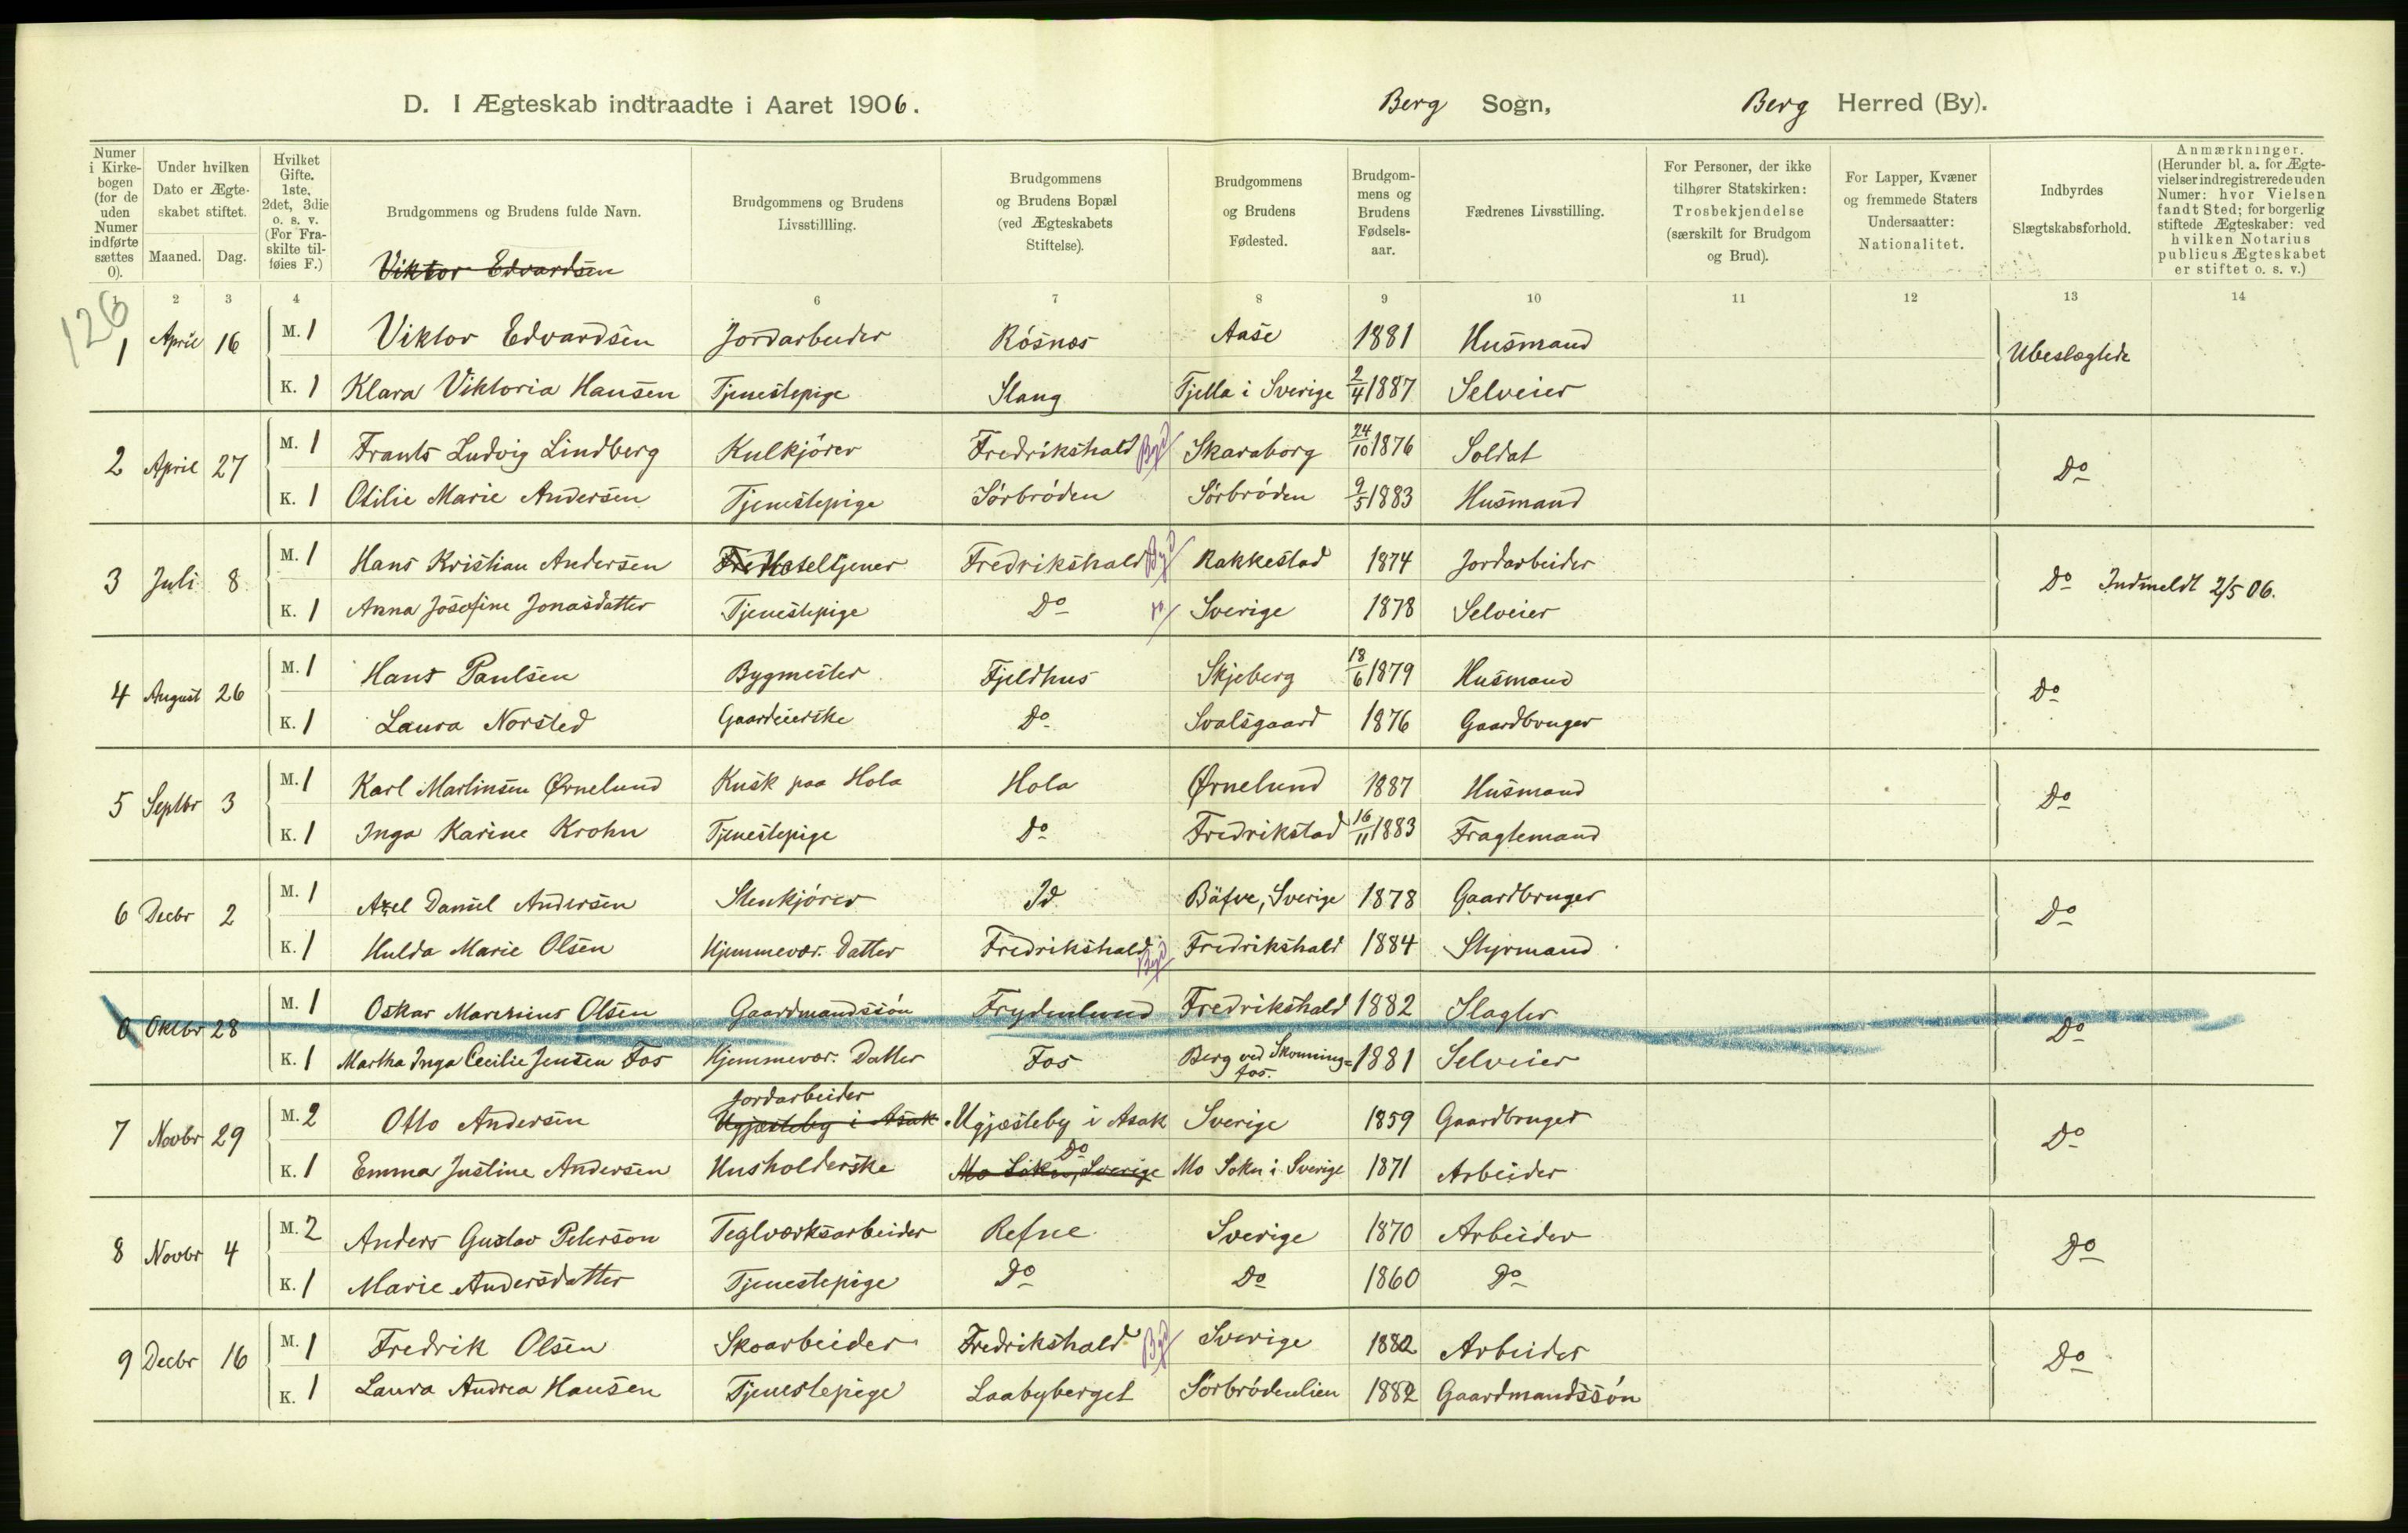 D. I Ægteskab indtraadte i Aaret 1906. Berg Sogn, Berg Herred (By).
Numer i Kirkebogen (for de uden Numer indførte sættes 0).
Under hvilken Dato er Ægteskabet stiftet.
Maaned. Dag.
Hvilket Gifte. 1ste, 2det, 3die o. s. v. (For Fraskilte tilføies F.)
Brudgommens og Brudens fulde Navn.
Viktor Edvardsen
Brudgommens og Brudens Livsstillling.
Brudgommens og Brudens Bopæl (ved Ægteskabets Stiftelse).
Brudgommens og Brudens Fødested.
Brudgommens og Brudens Fødselsaar.
Fædrenes Livsstilling.
For Personer, der ikke tilhører Statskirken: Trosbekjendelse (særskilt for Brudgom og Brud).
For Lapper, Kvæner og fremmede Staters Undersaatter: Nationalitet.
Indbyrdes Slægtskabsforhold.
Anmærkninger. (Herunder bl. a. for Ægtevielser indregistrerede uden Numer: hvor Vielsen fandt Sted; for borgerlig stiftede Ægteskaber: ved hvilken Notarius publicus Ægteskabet er stiftet o. s. v.)
2 3 4 6 7 8 9 10 11 12 13 14
126
1 April 16 M. 1 Viktor Edvardsen Jordarbeider Rösnæs Aase 1881 Husmand Ubeslægtede
K. 1 Klara Viktoria Hansen Tjenestepige Stang Tjella i Sverige 2/4 1887 Selveier
2 April 27 M. 1 Frants Ludvig Lindberg Kulkjörer Fredrikshald By Skaraborg 24/10 1876 Soldat Do
K. 1 Otilie Marie Andersen Tjenestepige Sörbröden Sörbröden 9/5 1883 Husmand
3 Juli 8 M. 1 Hans Kristian Andersen Fre Hoteltjener Fredrikshald By Rakkestad 1874 Jordarbeider Do Indmeldt 2/5 06.
K. 1 Anna Josefine Jonasdatter Tjenestepige Do Sverige 1878 Selveier
4 August 26 M. 1 Hans Paulsen Bygmester Fjeldhus Skjeberg 18/6 1879 Husmand Do
K. 1 Laura Norsted Gaardeierske Do Svalsgaard 1876 Gaardbruger
5 Septbr 3 M. 1 Karl Martinsen Ørnelund Kusk paa Hola Hola Ørnelund 1887 Husmand Do
K. 1 Inga Karine Krohn Tjenestepige Do Fredrikstad 16/11 1883 Fragtemand
6 Decbr 2 M. 1 Axel Daniel Andersen Stenkjörer Id Bäfve, Sverige 1878 Gaardbruger Do
K. 1 Hulda Marie Olsen Hjemmevær. Datter Fredrikshald By Fredrikshald 1884 Styrmand
0 Oktbr 28 M. 1 Oskar Marenius Olsen Gaardmandssön Frydenlund Fredrikshald 1882 Slagter Do
K. 1 Martha Inga Cecilie Jensen Fos Hjemmevær. Datter Fos Berg ved Skonningfos. 1881 Selveier
7 Novbr 29 M. 2 Otto Andersen Jordarbeider Ugjæsteby i Asak Ugjæsteby i Asak Sverige 1859 Gaardbruger Do
K. 1 Emma Justine Andersen Husholderske Mo Sokn, Sverige Do Mo Sokn i Sverige 1871 Arbeider
8 Novbr 4 M. 2 Anders Gustav Peterson Teglværksarbeider Refne Sverige 1870 Arbeider Do
K. 1 Marie Andersdatter Tjenestepige Do Do 1860 Do
9 Decbr 16 M. 1 Fredrik Olsen Skoarbeider Fredrikshald By Sverige 1882 Arbeider Do
K. 1 Laura Andrea Hansen Tjenestepige Laabyberget Sörbrödenlien 1882 Gaardmandssön